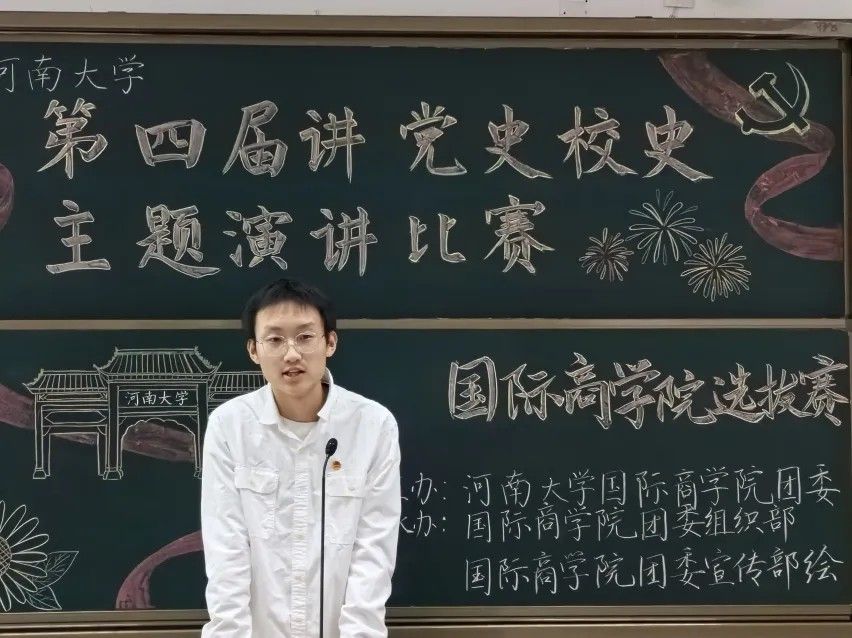 河南大学
第四届讲党史校史
主题演讲比赛
河南大学
国际商学院选拔赛
办：河南大学国际商学院团委
办：国际商学院团委组织部
国际商学院团委宣传部绘